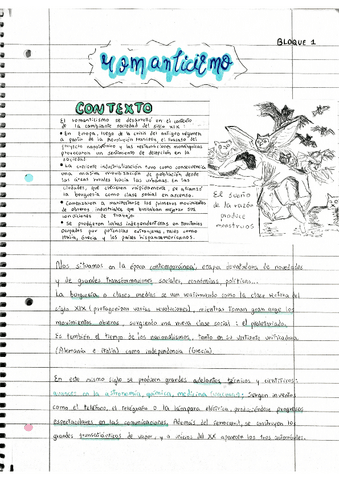 BLOQUE 1
romanticismo
CONTEXTO
El romanticismo se desarrolló en el contexto
de la cambiante sociedad del siglo XIX:
• En Europa, luego de la crisis del antiguo régimen
a partir de la Revolución francesa, el fracaso del
proyecto napoleónico y las restauraciones monárquicas
provocaron un sentimiento de decepción en la
sociedad.
• La creciente industrialización tuvo como consecuencia
una masiva movilización de población desde
las áreas rurales hacia las urbanas. En las
ciudades, que crecieron rápidamente, se afianzó
la burguesía como clase social en ascenso.
• Comenzaron a manifestarse los primeros movimientos
de obreros industriales que buscaban mejorar sus
condiciones de trabajo.
• Se produjeron luchas independentistas en territorios
ocupados por potencias extranjeras, tales como
Italia, Grecia y los países hispanoamericanos.
El sueño
de la razón
produce
monstruos
Nos situamos en la época contemporánea, etapa de novedades
y de grandes transformaciones sociales, económicas, políticas...
La burguesía o clases medias se van reafirmando como la clase rectora del
siglo XIX (protagonizan varias revoluciones), mientras toman gran auge los
movimientos obreros, surgiendo una nueva clase social: el proletariado.
Es también el tiempo de los nacionalismos. Tanto en su vertiente unificadora
(Alemania e Italia) como independencia (Grecia).
En este mismo siglo se producen grandes adelantos técnicos y científicos:
avances en la astronomía, química, medicina (vacunas); surgen inventos
como el teléfono, el telégrafo o la lámpara eléctrica, produciéndose progresos
espectaculares en las comunicaciones. Además del ferrocarril, se construyen los
grandes transatlánticos de vapor, y a inicios del XX aparecen los tres automóviles.